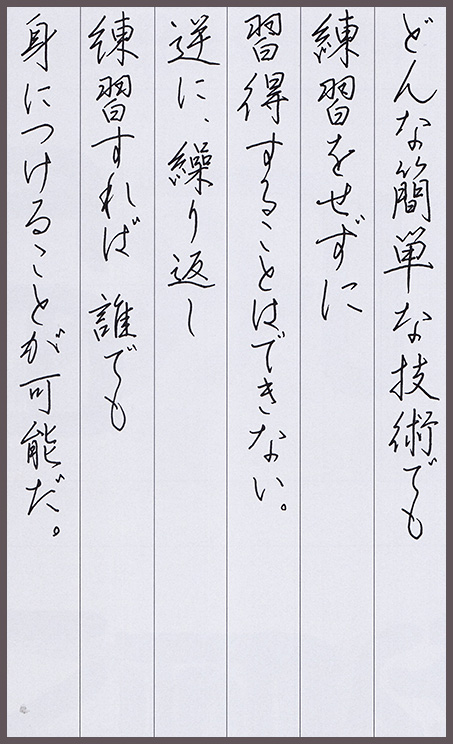 どんな簡単な技術でも
練習をせずに
習得することはできない。
逆に、繰り返し
練習すれば 誰でも
身につけることが可能だ。